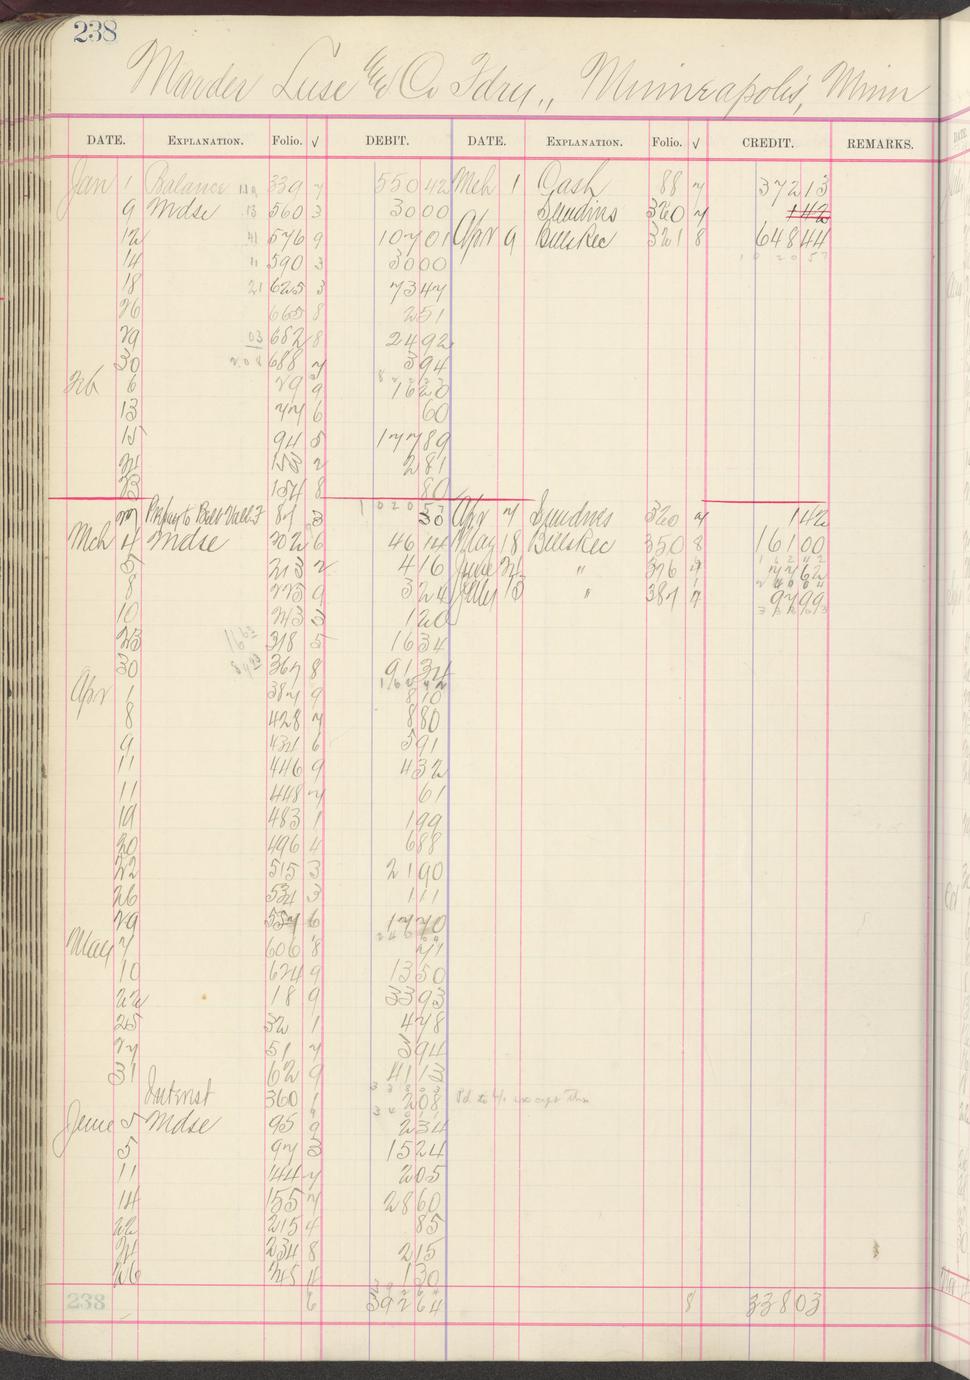 238
Marder Luse & Co Fdry., Minneapolis, Minn
DATE. EXPLANATION. Folio. √ DEBIT. DATE. EXPLANATION. Folio. √ CREDIT. REMARKS.
Jan 1 Balance 339 7 550 42 Mch 1 Cash 88 7 372 13
9 Mdse 13 560 3 30 00 Sundries 320 7 1 42
12 41 576 9 107 01 Apr 9 Bills Rec 321 8 648 44
14 11 590 3 30 00 1020 57
18 21 625 3 73 47
26 665 8 2 51
29 03 682 8 24 92
30 2.08 688 7 3 94
Feb 6 29 9 16 20
13 77 6 60
15 94 5 177 89
21 153 2 2 81
23 154 8 80
1020 57
27 81 3 30 Apr 7 Sundries 320 7 1 42
Mch 4 Mdse 202 6 46 14 May 18 Bills Rec 350 8 161 00
5 213 2 4 16 June 21 " 376 77 62
8 225 9 3 24 July 13 " 387 7 97 99
10 243 3 1 20
23 318 5 16 34
30 367 8 91 34
Apr 1 387 9 8 10
8 428 7 8 80
9 434 6 5 91
11 446 9 4 32
11 448 7 61
19 483 1 1 99
20 496 4 6 88
22 515 3 21 90
26 534 3 1 11
29 557 6 17 70
May 7 606 8 71
10 624 9 13 50
22 18 9 33 93
25 32 1 4 78
27 51 7 3 94
31 62 9 41 13
Interest 360 1 2 08
June 5 Mdse 95 9 2 34
5 97 3 15 24
11 144 7 2 05
14 155 7 28 60
22 215 4 85
24 234 8 2 15
26 245 4 1 30
238 6 392 64 8 338 03